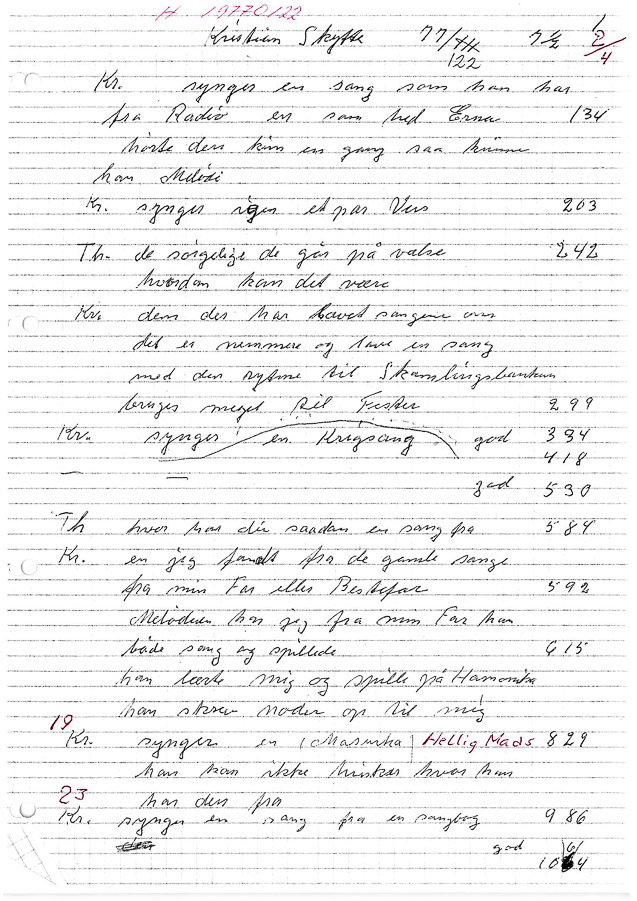 H. 19770122
Kristian Skytte 77/ 122 7½ 1 2/4
Kr. synger en sang som han har
fra Radio en som hed Erna 134
hørte den kun en gang saa kunne
han Melodi
Kr. synger igen et par Vers 203
Th. de sørgelige de går på valse 242
hvordan kan det være
Kr. dem der har lavet sangene om
det er nemmere og lave en sang
med den rytme til Skamlingsbanken
bruges meget til Fester 299
Kr. synger en Krigsang god 334
418
god 530
Th hvor har du saadan en sang fra 584
Kr. en jeg fandt fra de gamle sange
fra min Far eller Bestefar 592
Melodien har jeg fra min Far han
både sang og spillede 615
han lærte mig og spille på Hamonika
han skrev noder op til mig
19
Kr. synger en (Masurka) Hellig Mads 829
han kan ikke huske hvor han
23 har den fra
Kr. synger en sang fra en sangbog 986
god